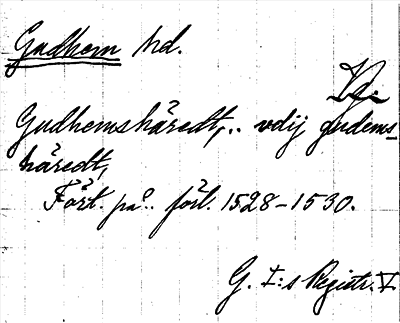 Gudhem hd.
Vg.
Gudhemshäredt, .. vdij gudems-
häredt,
Fört. på .. förl. 1528-1530.
G. I:s Registr. V